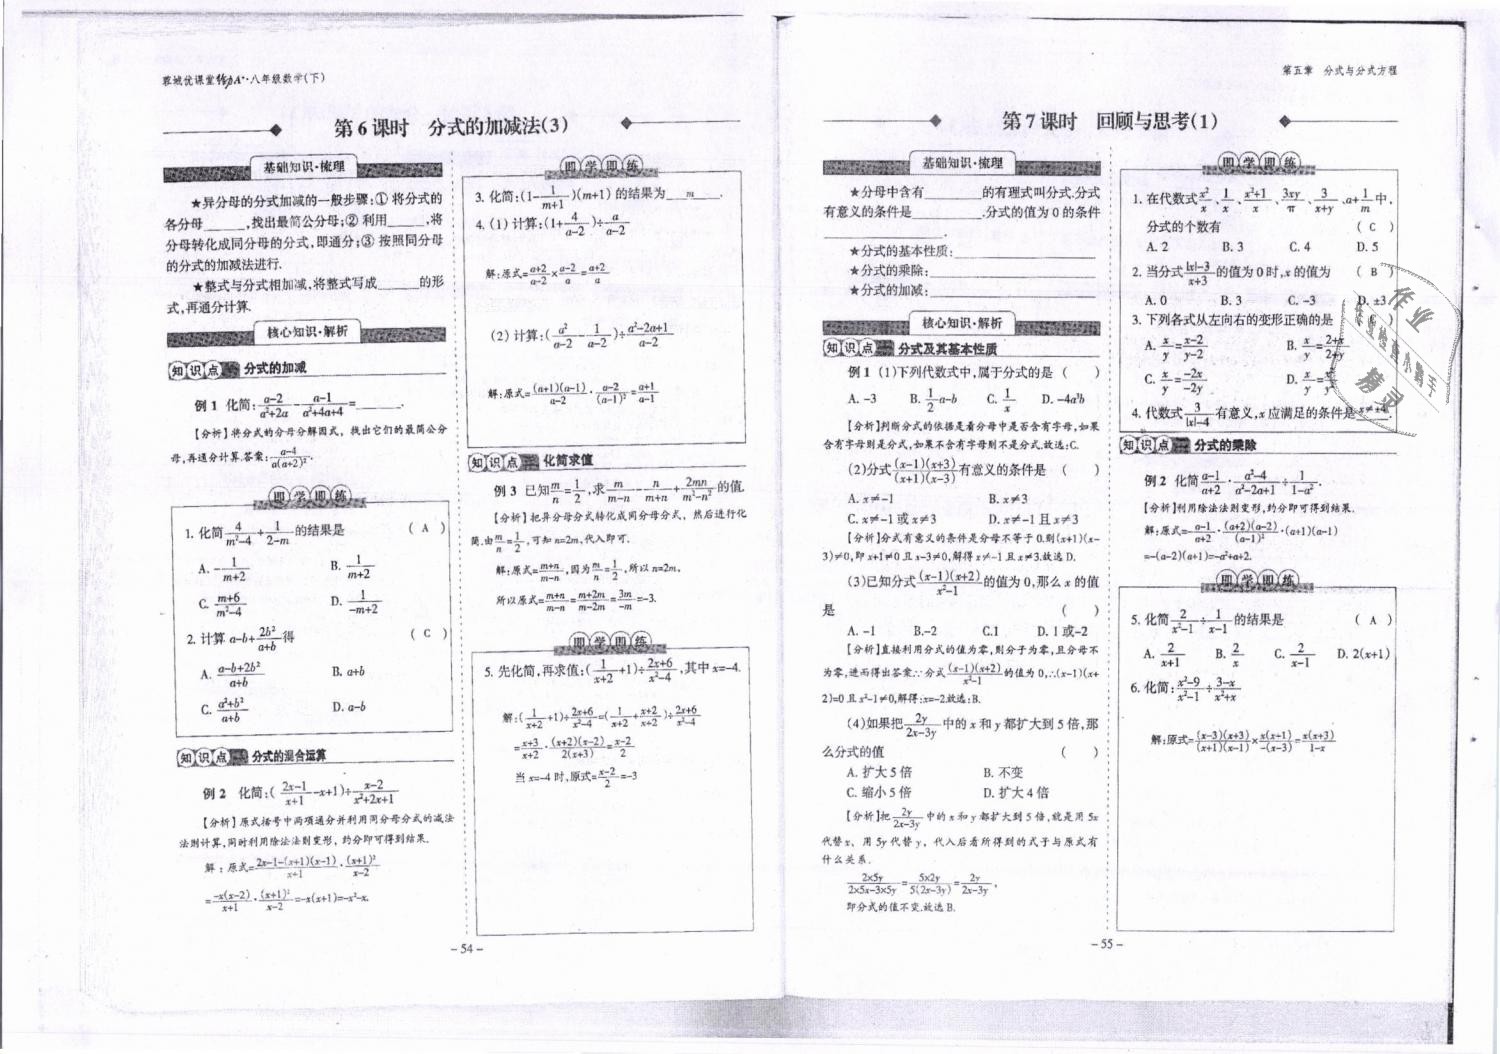 蓉城优课堂 给力A⁺·八年级数学(下)
第6课时 分式的加减法(3)
基础知识·梳理
★异分母的分式加减的一般步骤:①将分式的
各分母______,找出最简公分母;②利用______,将
分母转化成同分母的分式,即通分;③按照同分母
的分式的加减法进行.
★整式与分式相加减,将整式写成______的形
式,再通分计算.
核心知识·解析
知识点一 分式的加减
例1 化简:(a-2)/(a²+2a)-(a-1)/(a²+4a+4)=______.
【分析】将分式的分母分解因式,找出它们的最简公分
母,再通分计算.答案:(a-4)/(a(a+2)²).
即学即练
1.化简 4/(m²-4)+1/(2-m) 的结果是 ( A )
A. -1/(m+2) B. 1/(m+2)
C. (m+6)/(m²-4) D. 1/(-m+2)
2.计算 a-b+2b²/(a+b) 得 ( C )
A. (a-b+2b²)/(a+b) B. a+b
C. (a²+b²)/(a+b) D. a-b
知识点二 分式的混合运算
例2 化简:((2x-1)/(x+1)-x+1)÷(x-2)/(x²+2x+1)
【分析】原式括号中两项通分并利用同分母分式的减法
法则计算,同时利用除法法则变形,约分即可得到结果.
解:原式=(2x-1-(x+1)(x-1))/(x+1)·(x+1)²/(x-2)
=-x(x-2)/(x+1)·(x+1)²/(x-2)=-x(x+1)=-x²-x.
即学即练
3.化简:(1-1/(m+1))(m+1) 的结果为 m .
4.(1)计算:(1+4/(a-2))÷a/(a-2)
解:原式=(a+2)/(a-2)×(a-2)/a=(a+2)/a
(2)计算:(a²/(a-2)-1/(a-2))÷(a²-2a+1)/(a-2)
解:原式=(a+1)(a-1)/(a-2)·(a-2)/(a-1)²=(a+1)/(a-1)
知识点三 化简求值
例3 已知 m/n=1/2,求 m/(m-n)-n/(m+n)+2mn/(m²-n²) 的值.
【分析】把异分母分式转化成同分母分式,然后进行化
简.由 m/n=1/2,可知 n=2m,代入即可.
解:原式=(m+n)/(m-n),因为 m/n=1/2,所以 n=2m,
所以原式=(m+n)/(m-n)=(m+2m)/(m-2m)=3m/(-m)=-3.
即学即练
5.先化简,再求值:(1/(x+2)+1)÷(2x+6)/(x²-4),其中 x=-4.
解:(1/(x+2)+1)÷(2x+6)/(x²-4)=(1/(x+2)+(x+2)/(x+2))÷(2x+6)/(x²-4)
=(x+3)/(x+2)·(x+2)(x-2)/(2(x+3))=(x-2)/2
当 x=-4 时,原式=(x-2)/2=-3
-54-
第五章 分式与分式方程
第7课时 回顾与思考(1)
基础知识·梳理
★分母中含有______的有理式叫分式.分式
有意义的条件是______.分式的值为0的条件
______.
★分式的基本性质:______
★分式的乘除:______
★分式的加减:______
核心知识·解析
知识点一 分式及其基本性质
例1 (1)下列代数式中,属于分式的是 ( )
A. -3 B. 1/2a-b C. 1/x D. -4a³b
【分析】判断分式的依据是看分母中是否含有字母,如果
含有字母则是分式,如果不含有字母则不是分式.故选:C.
(2)分式 (x-1)(x+3)/((x+1)(x-3)) 有意义的条件是 ( )
A. x≠-1 B. x≠3
C. x≠-1或x≠3 D. x≠-1且x≠3
【分析】分式有意义的条件是分母不等于0.则(x+1)(x-
3)≠0,即x+1≠0且x-3≠0,解得x≠-1且x≠3.故选D.
(3)已知分式 (x-1)(x+2)/(x²-1) 的值为0,那么x的值
是 ( )
A. -1 B.-2 C.1 D. 1或-2
【分析】直接利用分式的值为零,则分子为零,且分母不
为零,进而得出答案.∵分式 (x-1)(x+2)/(x²-1) 的值为0,∴(x-1)(x+
2)=0且x²-1≠0,解得:x=-2.故选:B.
(4)如果把 2y/(2x-3y) 中的x和y都扩大到5倍,那
么分式的值 ( )
A. 扩大5倍 B. 不变
C. 缩小5倍 D. 扩大4倍
【分析】把 2y/(2x-3y) 中的x和y都扩大到5倍,就是用5x
代替x, 用5y代替y, 代入后看所得到的式子与原式有
什么关系.
2×5y/(2×5x-3×5y)=5×2y/(5(2x-3y))=2y/(2x-3y),
即分式的值不变.故选B.
即学即练
1.在代数式 x²/x、1/x、(x²+1)/x、3xy/π、3/(x+y)、a+1/m 中,
分式的个数有 ( C )
A. 2 B. 3 C. 4 D. 5
2.当分式 (|x|-3)/(x+3) 的值为0时,x的值为 ( B )
A. 0 B. 3 C. -3 D. ±3
3.下列各式从左向右的变形正确的是
A. x/y=(x-2)/(y-2) B. x/y=(2+x)/(2+y)
C. x/y=-2x/-2y D.
4.代数式 3/(|x|-4) 有意义,x应满足的条件是 x≠±4 .
知识点二 分式的乘除
例2 化简 (a-1)/(a+2)·(a²-4)/(a²-2a+1)÷1/(1-a²).
【分析】利用除法法则变形,约分即可得到结果.
解:原式=-(a-1)/(a+2)·(a+2)(a-2)/(a-1)²·(a+1)(a-1)
=-(a-2)(a+1)=-a²+a+2.
即学即练
5.化简 2/(x²-1)÷1/(x-1) 的结果是 ( A )
A. 2/(x+1) B. 2/x C. 2/(x-1) D. 2(x+1)
6.化简:(x²-9)/(x²-1)÷(3-x)/(x²+x)
解:原式=(x-3)(x+3)/((x+1)(x-1))×x(x+1)/(-(x-3))=x(x+3)/(1-x)
-55-
作业
精灵